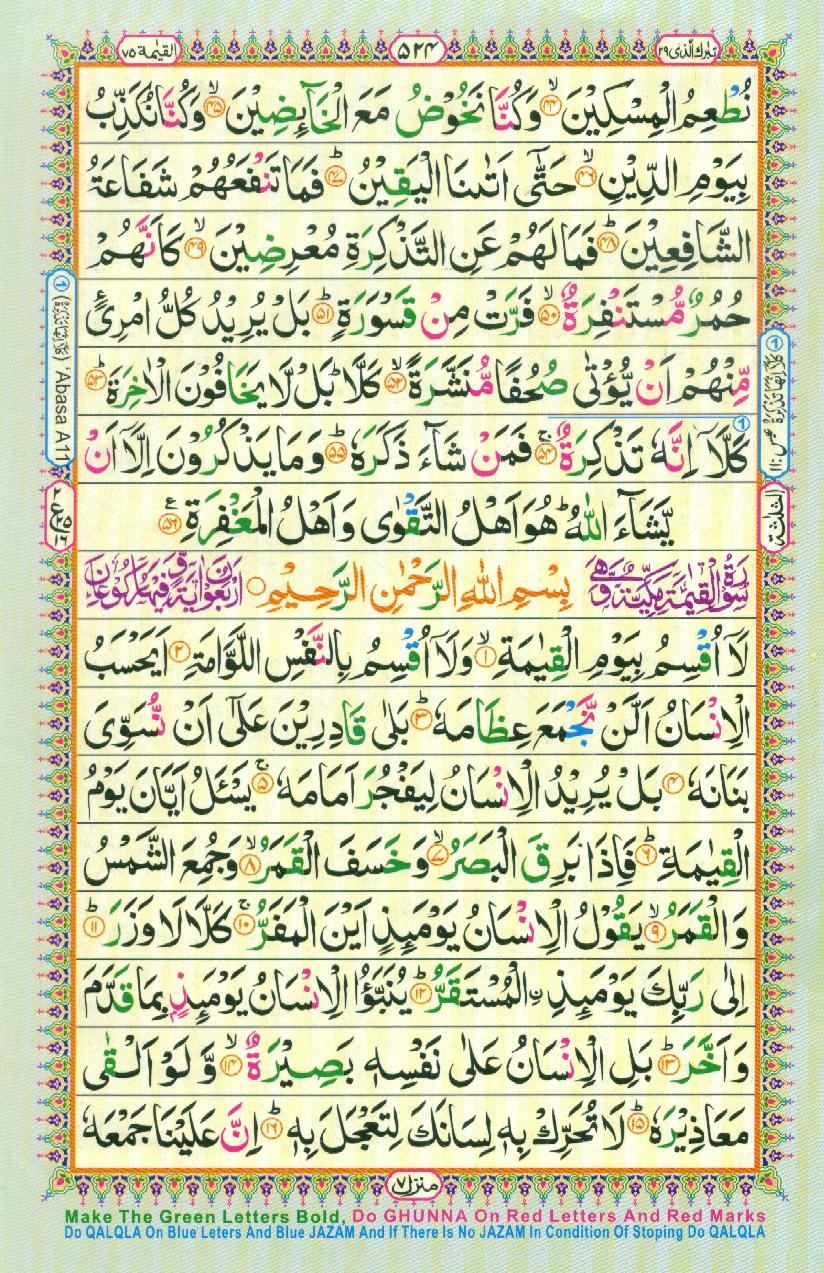 تبٰرك الّذی ٢٩
٥٢٤
القیٰمة ٧٥
نُطْعِمُ الْمِسْكِیْنَ ۙ﴿٤٤﴾ وَكُنَّا نَخُوْضُ مَعَ الْخَآىِٕضِیْنَ ۙ﴿٤٥﴾ وَكُنَّا نُكَذِّبُ
بِیَوْمِ الدِّیْنِ ۙ﴿٤٦﴾ حَتّٰۤی اَتٰىنَا الْیَقِیْنُ ؕ﴿٤٧﴾ فَمَا تَنْفَعُهُمْ شَفَاعَةُ
الشَّافِعِیْنَ ؕ﴿٤٨﴾ فَمَا لَهُمْ عَنِ التَّذْكِرَةِ مُعْرِضِیْنَ ۙ﴿٤٩﴾ كَاَنَّهُمْ
حُمُرٌ مُّسْتَنْفِرَةٌ ۙ﴿٥٠﴾ فَرَّتْ مِنْ قَسْوَرَةٍ ؕ﴿٥١﴾ بَلْ یُرِیْدُ كُلُّ امْرِئٍ
مِّنْهُمْ اَنْ یُّؤْتٰی صُحُفًا مُّنَشَّرَةً ۙ﴿٥٢﴾ كَلَّا ؕ بَلْ لَّا یَخَافُوْنَ الْاٰخِرَةَ ؕ﴿٥٣﴾
كَلَّاۤ اِنَّهٗ تَذْكِرَةٌ ۚ﴿٥٤﴾ فَمَنْ شَآءَ ذَكَرَهٗ ؕ﴿٥٥﴾ وَمَا یَذْكُرُوْنَ اِلَّاۤ اَنْ
یَّشَآءَ اللّٰهُ ؕ هُوَ اَهْلُ التَّقْوٰی وَاَهْلُ الْمَغْفِرَةِ ﴿٥٦﴾ ع
سُوْرَةُ الْقِیٰمَةِ مَكِّیَّةٌ وَّهِیَ بِسْمِ اللّٰهِ الرَّحْمٰنِ الرَّحِیْمِ اَرْبَعُوْنَ اٰیَةً وَّفِیْهَا رُكُوْعَانِ
لَاۤ اُقْسِمُ بِیَوْمِ الْقِیٰمَةِ ۙ﴿١﴾ وَلَاۤ اُقْسِمُ بِالنَّفْسِ اللَّوَّامَةِ ؕ﴿٢﴾ اَیَحْسَبُ
الْاِنْسَانُ اَلَّنْ نَّجْمَعَ عِظَامَهٗ ؕ﴿٣﴾ بَلٰی قَادِرِیْنَ عَلٰۤی اَنْ نُّسَوِّیَ
بَنَانَهٗ ﴿٤﴾ بَلْ یُرِیْدُ الْاِنْسَانُ لِیَفْجُرَ اَمَامَهٗ ۚ﴿٥﴾ یَسْـَٔلُ اَیَّانَ یَوْمُ
الْقِیٰمَةِ ؕ﴿٦﴾ فَاِذَا بَرِقَ الْبَصَرُ ۙ﴿٧﴾ وَخَسَفَ الْقَمَرُ ۙ﴿٨﴾ وَجُمِعَ الشَّمْسُ
وَالْقَمَرُ ۙ﴿٩﴾ یَقُوْلُ الْاِنْسَانُ یَوْمَىِٕذٍ اَیْنَ الْمَفَرُّ ۚ﴿١٠﴾ كَلَّا لَا وَزَرَ ؕ﴿١١﴾
اِلٰی رَبِّكَ یَوْمَىِٕذِ ِ۟الْمُسْتَقَرُّ ؕ﴿١٢﴾ یُنَبَّؤُا الْاِنْسَانُ یَوْمَىِٕذٍۭ بِمَا قَدَّمَ
وَاَخَّرَ ؕ﴿١٣﴾ بَلِ الْاِنْسَانُ عَلٰی نَفْسِهٖ بَصِیْرَةٌ ۙ﴿١٤﴾ وَّلَوْ اَلْقٰی
مَعَاذِیْرَهٗ ؕ﴿١٥﴾ لَا تُحَرِّكْ بِهٖ لِسَانَكَ لِتَعْجَلَ بِهٖ ؕ﴿١٦﴾ اِنَّ عَلَیْنَا جَمْعَهٗ
١ (كَلَّاۤ اِنَّهَا تَذْكِرَةٌ) 'Abasa A11
١ كَلَّاۤ اِنَّهَا تَذْكِرَةٌ عبس: ١١
الثلثة
منزل ٧
Make The Green Letters Bold, Do GHUNNA On Red Letters And Red Marks
Do QALQLA On Blue Leters And Blue JAZAM And If There Is No JAZAM In Condition Of Stoping Do QALQLA